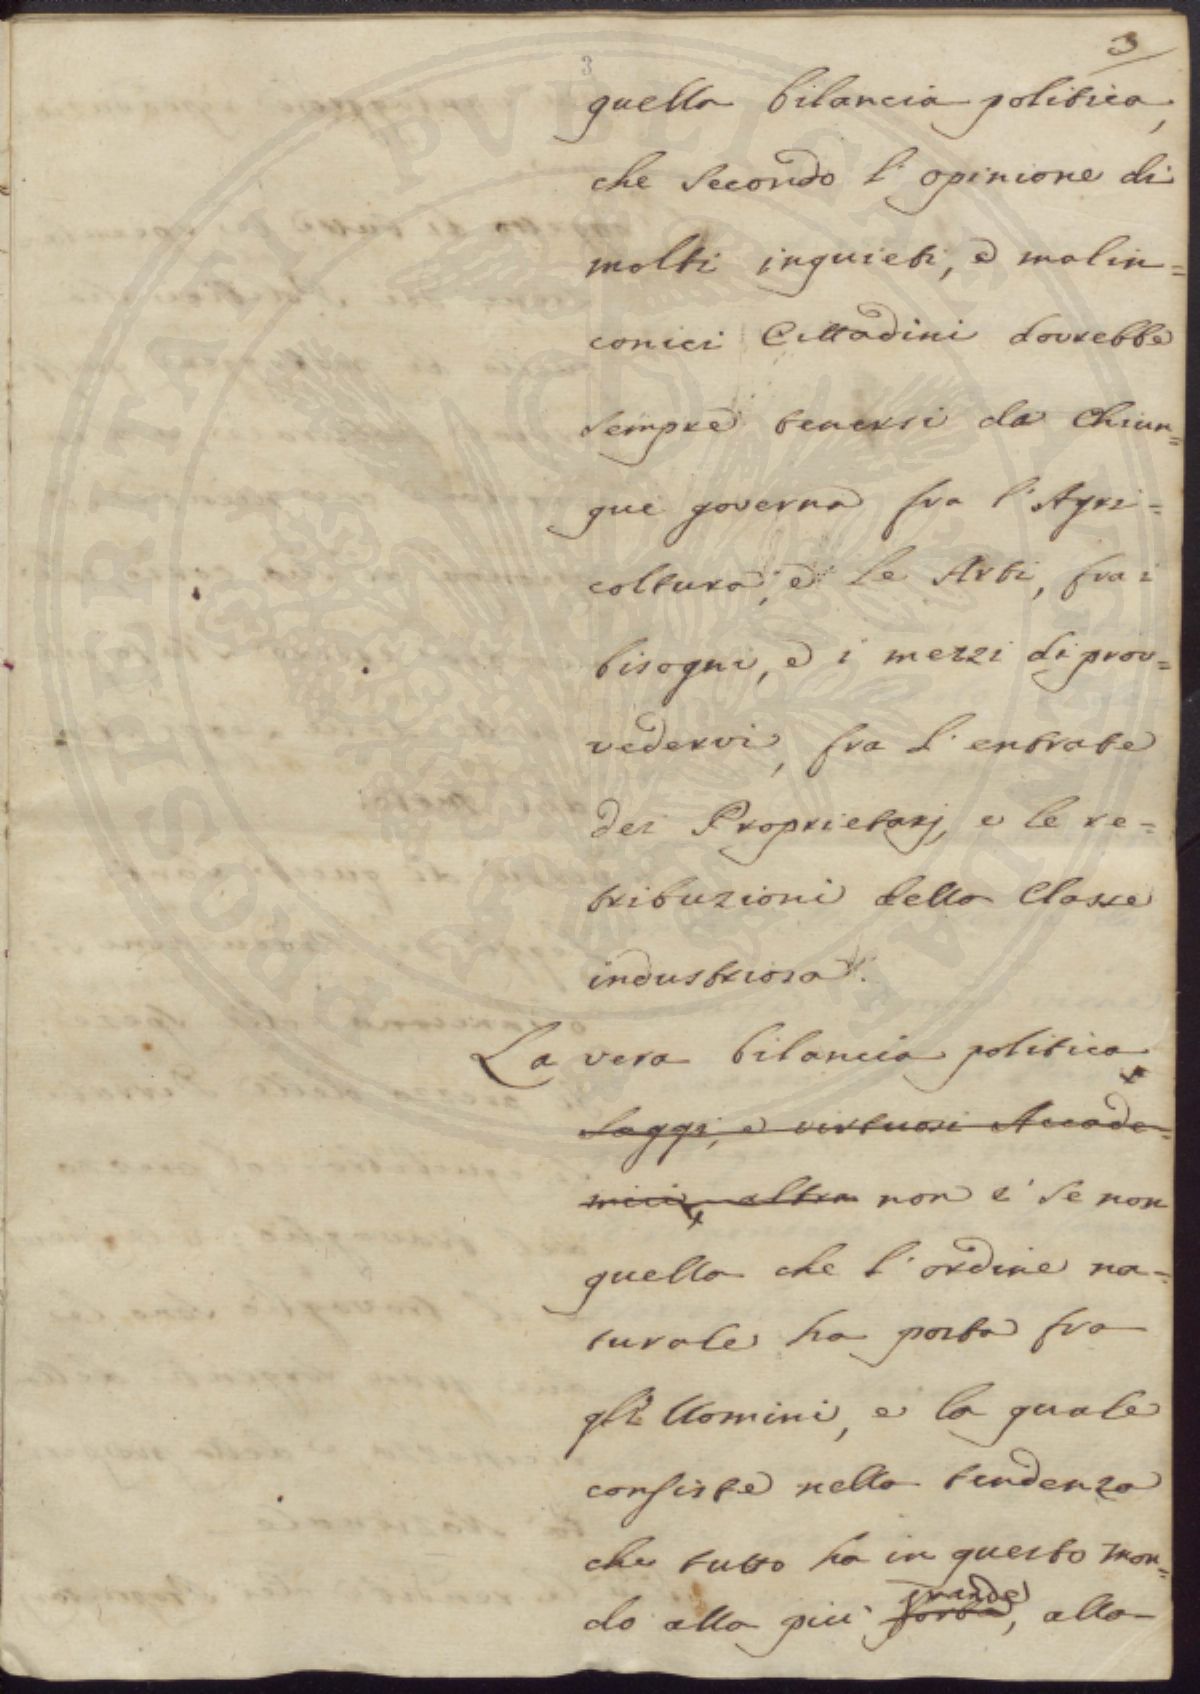 3
3
quella bilancia politica,
che secondo l'opinione di
molti inquieti, e malin=
conici Cittadini dovrebbe
sempre tenersi da chiun=
que governa fra l'Agri=
coltura, e le Arti, fra i
bisogni, e i mezzi di prov=
vedervi, fra l'entrate
dei Proprietarj, e le re=
tribuzioni della Classe
industriosa.
La vera bilancia politica
Saggi, e virtuosi Accade=
mici, altra non è se non
quella che l'ordine na=
turale ha posta fra
gli Uomini, e la quale
consiste nella tendenza
che tutto ha in questo mon=
grande
do alla più forte, alla
PROSPERITATI PUBLICAE AUGENDAE